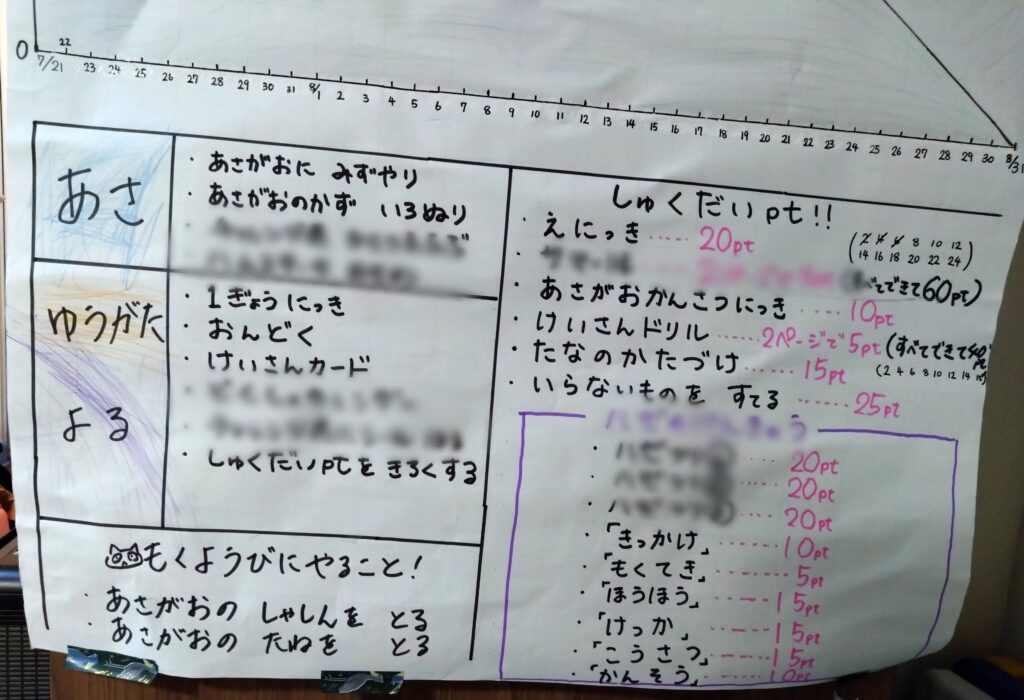 0
7/21 22 23 24 25 26 27 28 29 30 31 8/1 2 3 4 5 6 7 8 9 10 11 12 13 14 15 16 17 18 19 20 21 22 23 24 25 26 27 28 29 30 8/31
あさ
・あさがおに みずやり
・あさがおのかず いろぬり
ゆうがた
よる
・1ぎょうにっき
・おんどく
・けいさんカード
・しゅくだいptを きろくする
もくようびにやること!
・あさがおの しゃしんを とる
・あさがおの たねを とる
しゅくだいpt!!
・えにっき……20pt
(2 4 6 8 10 12
14 16 18 20 22 24)
できて60pt)
・あさがおかんさつにっき……10pt
・けいさんドリル……2ページで5pt(すべてできて40pt
(2 4 6 8 10 12 14
・たなのかたづけ……15pt
・いらないものを すてる……25pt
……20pt
……20pt
……20pt
・「きっかけ」……10pt
・「もくてき」……5pt
・「ほうほう」……15pt
・「けっか」……15pt
・「こうさつ」……15pt
・「かんそう」……10pt